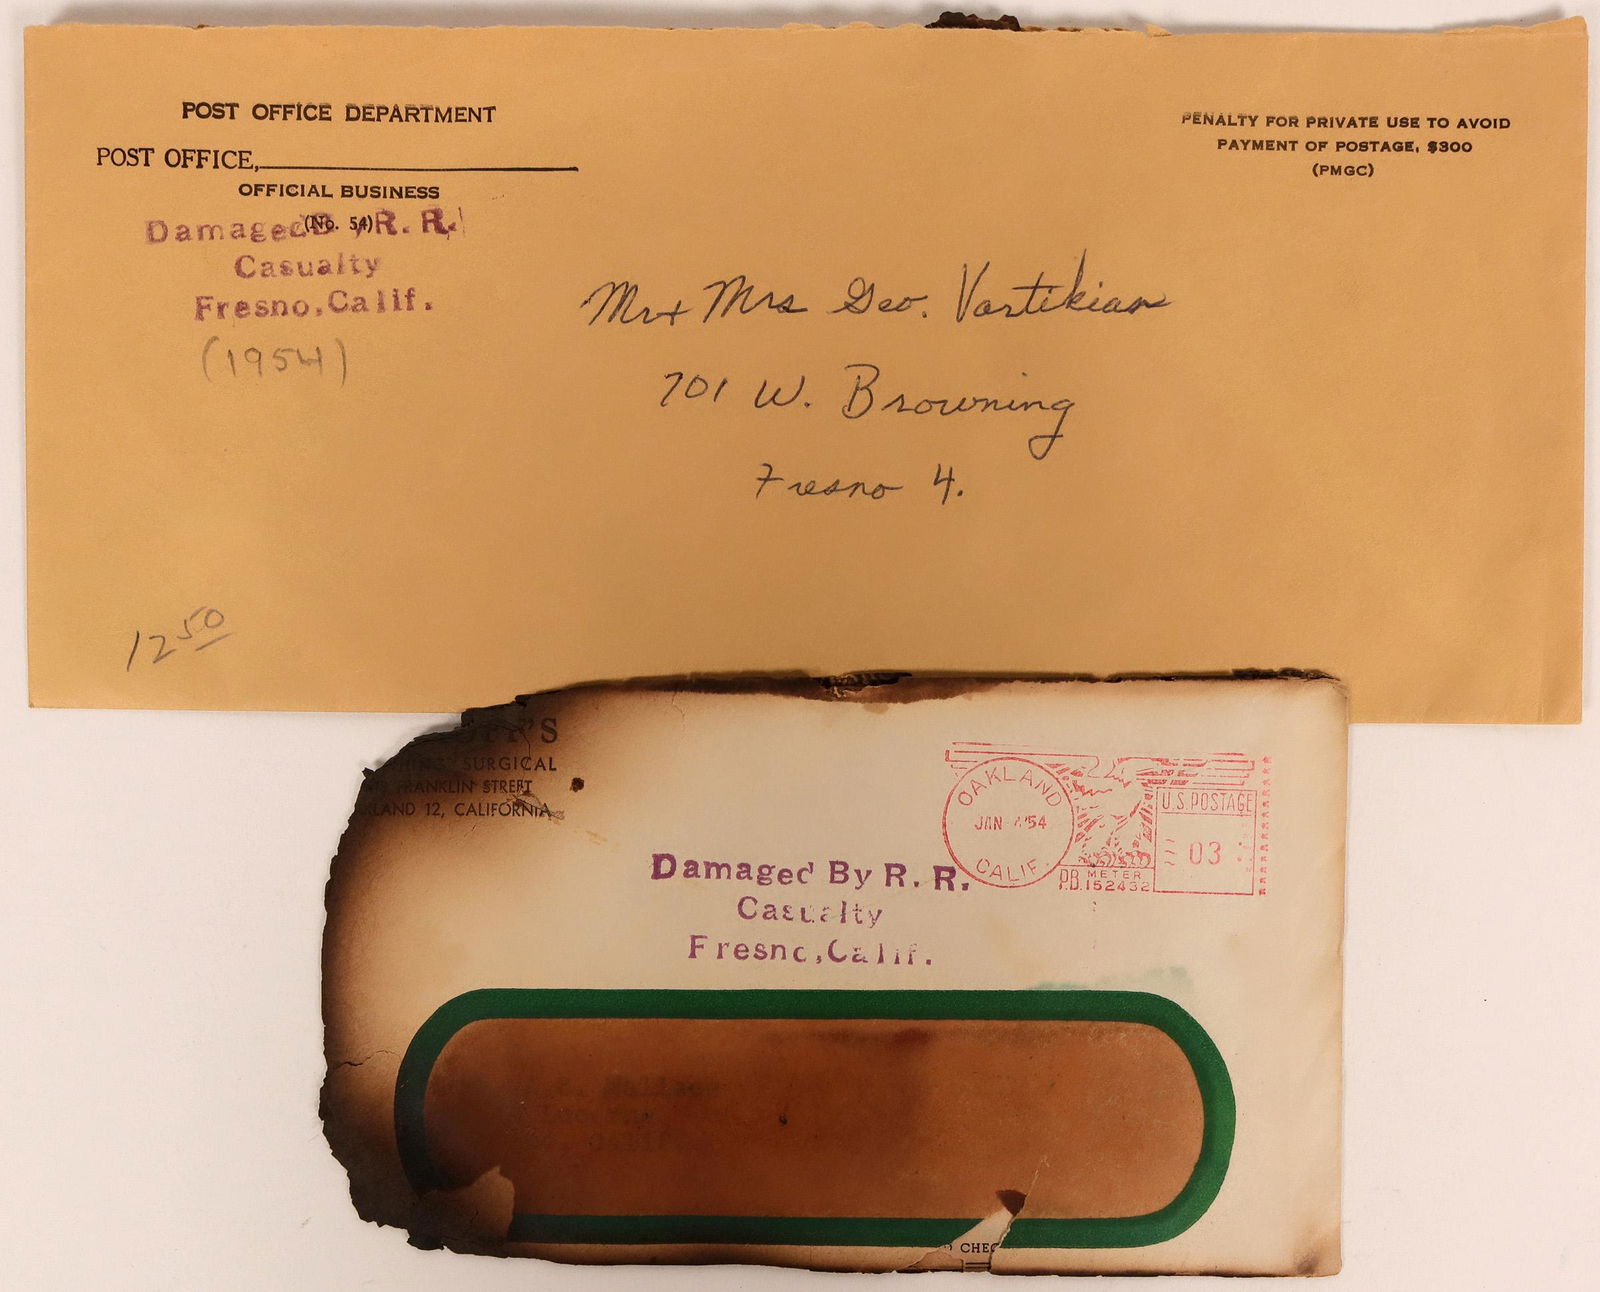 POST OFFICE DEPARTMENT
POST OFFICE,
OFFICIAL BUSINESS
(No. 54)
Damaged By R. R.
Casualty
Fresno, Calif.
(1954)
PENALTY FOR PRIVATE USE TO AVOID
PAYMENT OF POSTAGE, $300
(PMGC)
Mr + Mrs Geo. Vartikian
701 W. Browning
Fresno 4.
12 50
SURGICAL
FRANKLIN STREET
LAND 12, CALIFORNIA
OAKLAND
JAN 4 '54
CALIF.
U.S. POSTAGE
03
P.B. METER
152432
Damaged By R. R.
Casualty
Fresno, Calif.
CHEC